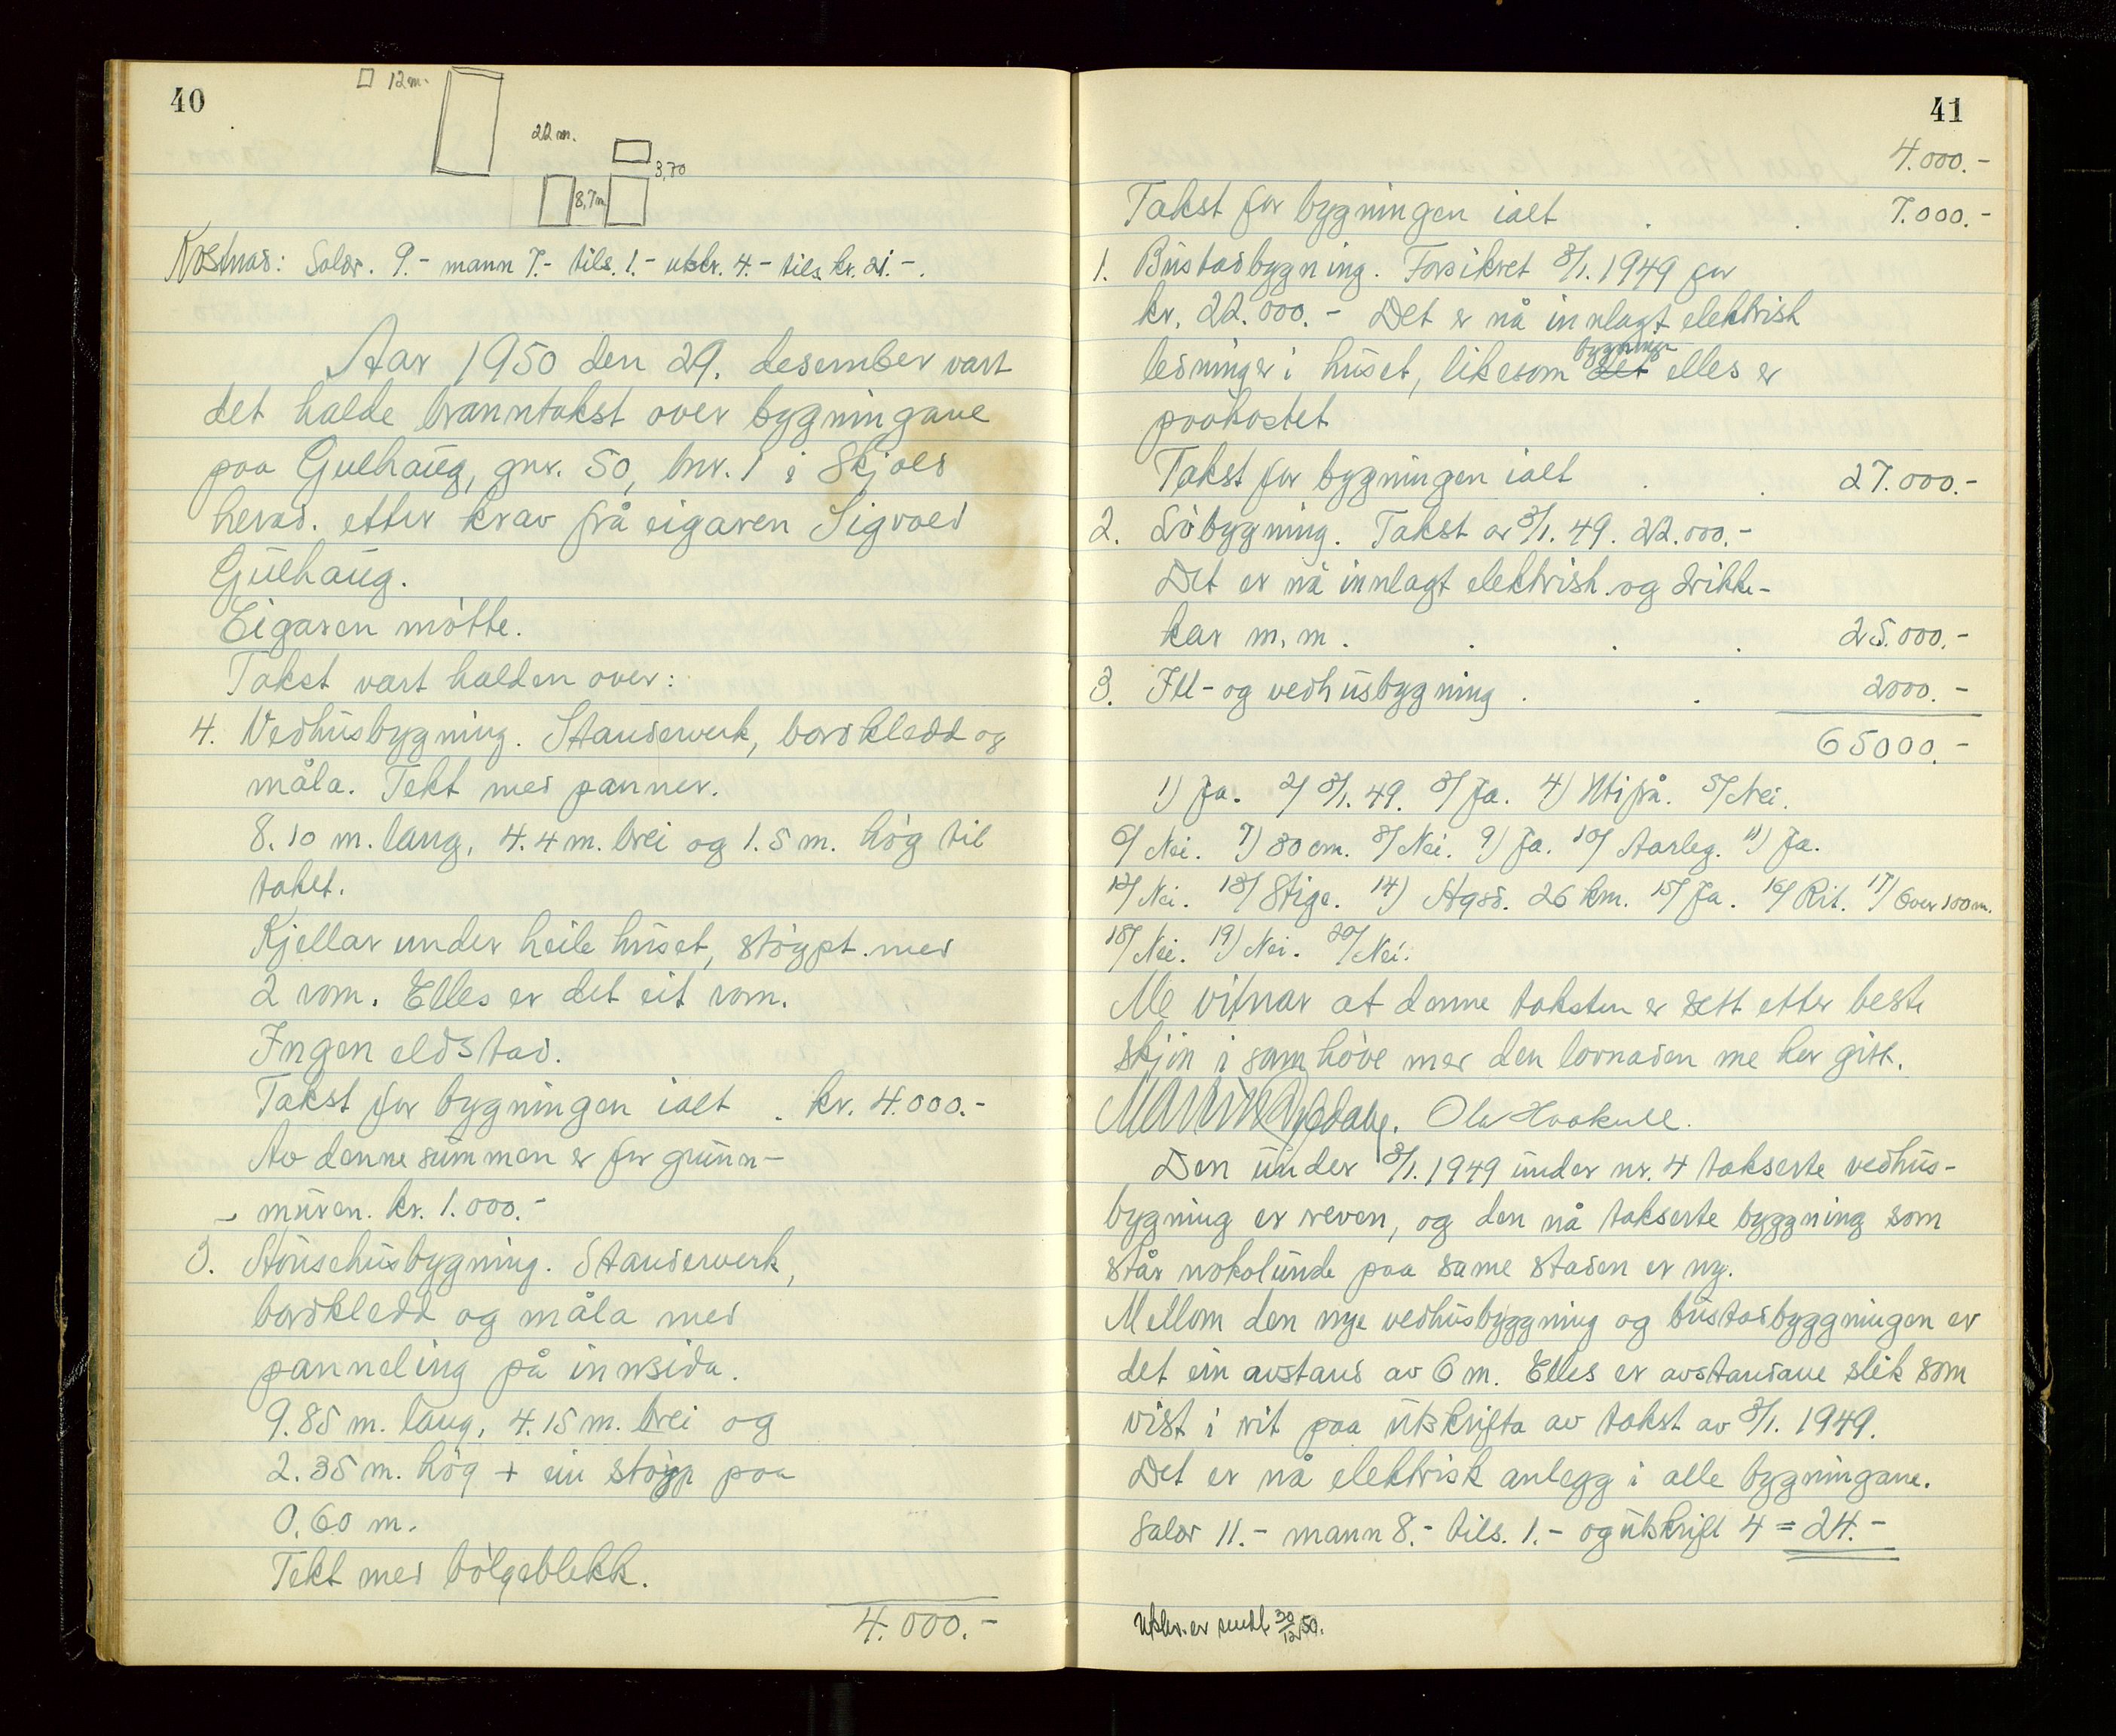 40
12 m.
22 m.
3,70
8,7 m
Kostnad: Salær. 9.- mann 7.- tils. 1.- utskr. 4.- tils kr. 21.-.
Aar 1950 den 29. desember vart
det halde branntakst over bygningane
paa Gulhaug, gnr. 50, bnr. 1 i Skjold
herad. etter krav frå eigaren Sigvald
Gulhaug.
Eigaren møtte.
Takst vart halden over:
4. Vedhusbygning. Standerverk, bordkledd og
måla. Tekt med panner.
8.10 m. lang, 4.4 m. brei og 1.5 m. høg til
taket.
Kjellar under heile huset, støypt med
2 rom. Elles er det eit rom.
Ingen eldstad.
Takst for bygningen ialt . kr. 4.000.-
Av denne summen er for grunn-
muren. kr. 1.000.-
5. Hønsehusbygning. Standerverk,
bordkledd og måla med
panneling på innsida.
9.85 m. lang, 4.15 m. brei og
2.35 m. høg + ein støyp paa
0.60 m.
Tekt med bølgeblekk.
4.000.-
41
4.000.-
Takst for bygningen ialt . . 7.000.-
1. Bustadbygning. Forsikret 3/1. 1949 for
kr. 22.000.- Det er nå innlagt elektrisk
ledninger i huset, likesom det bygningen elles er
paakostet
Takst for bygningen ialt . . 27.000.-
2. Løbygning. Takst av 3/1. 49. 22.000.-
Det er nå innlagt elektrisk og drikke-
kar m. m. . . . 25.000.-
3. Ill- og vedhusbygning . . 2000.-
65000.-
1) Ja. 2/ 3/1. 49. 3/ Ja. 4) Utifrå. 5/ Nei.
6/ Nei. 7) 30 cm. 8/ Nei. 9) Ja. 10/ Aarleg. 11) Ja.
12/ Nei. 13/ Stige. 14) 26 km. 15/ Ja. 16/ Rit. 17/ Over 100 m.
18/ Nei. 19) Nei. 20/ Nei.
Me vitnar at denne taksten er sett etter beste
skjøn i samhøve med den lovnaden me her gitt.
Ola Haakull.
Den under 3/1. 1949 under nr. 4 takserte vedhus-
bygning er reven, og den nå takserte byggning som
står nokolunde paa same staden er ny.
Mellom den nye vedhusbyggning og bustadbyggningen er
det ein avstand av 6 m. Elles er avstandane slik som
vist i rit paa utskrifta av takst av 3/1. 1949.
Det er nå elektrisk anlegg i alle bygningane.
Salær 11.- mann 8.- tils. 1.- og utskrift 4 = 24.-
Utskr. er sendt 30/12 50.